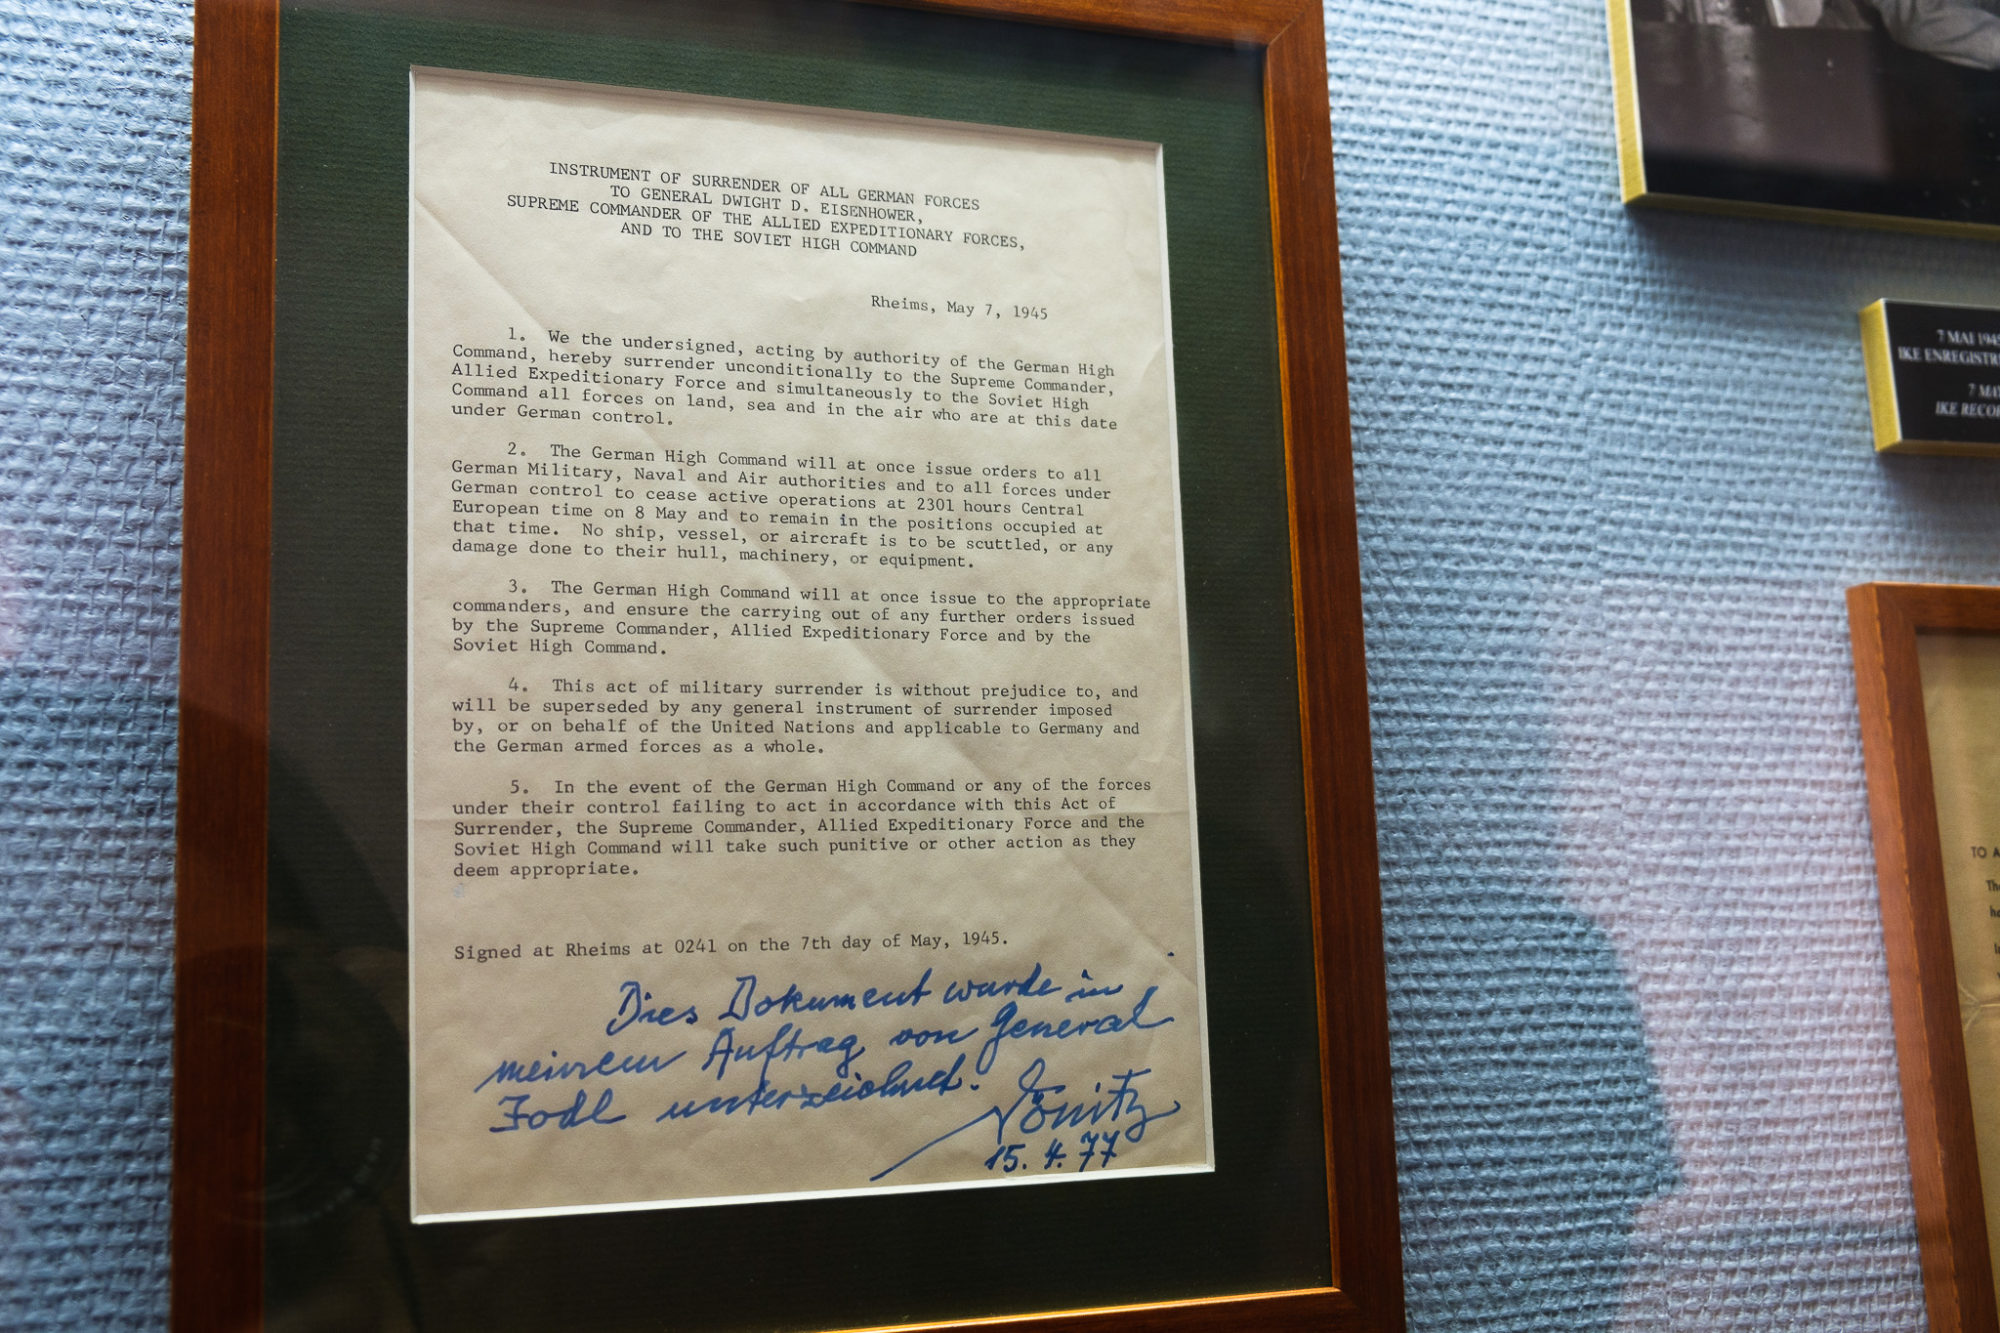 INSTRUMENT OF SURRENDER OF ALL GERMAN FORCES
TO GENERAL DWIGHT D. EISENHOWER,
SUPREME COMMANDER OF THE ALLIED EXPEDITIONARY FORCES,
AND TO THE SOVIET HIGH COMMAND
Rheims, May 7, 1945
1. We the undersigned, acting by authority of the German High
Command, hereby surrender unconditionally to the Supreme Commander,
Allied Expeditionary Force and simultaneously to the Soviet High
Command all forces on land, sea and in the air who are at this date
under German control.
2. The German High Command will at once issue orders to all
German Military, Naval and Air authorities and to all forces under
German control to cease active operations at 2301 hours Central
European time on 8 May and to remain in the positions occupied at
that time. No ship, vessel, or aircraft is to be scuttled, or any
damage done to their hull, machinery, or equipment.
3. The German High Command will at once issue to the appropriate
commanders, and ensure the carrying out of any further orders issued
by the Supreme Commander, Allied Expeditionary Force and by the
Soviet High Command.
4. This act of military surrender is without prejudice to, and
will be superseded by any general instrument of surrender imposed
by, or on behalf of the United Nations and applicable to Germany and
the German armed forces as a whole.
5. In the event of the German High Command or any of the forces
under their control failing to act in accordance with this Act of
Surrender, the Supreme Commander, Allied Expeditionary Force and the
Soviet High Command will take such punitive or other action as they
deem appropriate.
Signed at Rheims at 0241 on the 7th day of May, 1945.
Dies Dokument wurde in
meinem Auftrag von General
Jodl unterzeichnet. Dönitz
15. 4. 77
7 MAI 1945
IKE
7
IKE
TO